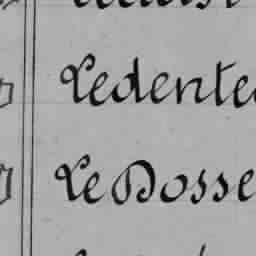 Ledente
Le Dosse